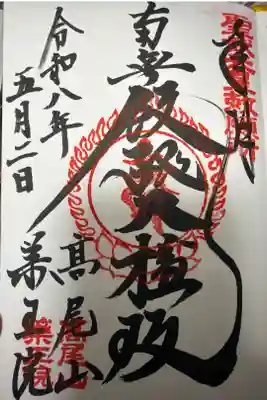 奉拝
南無飯縄大権現
髙尾山
薬王院
令和八年
五月二日